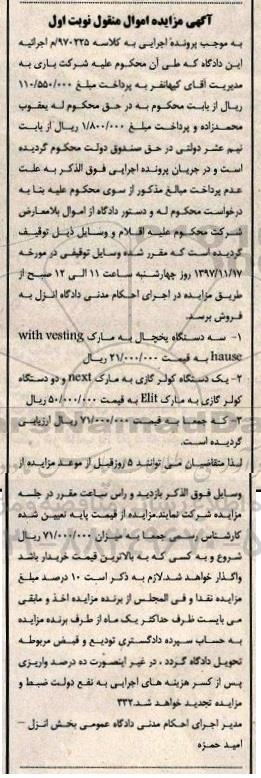 آگهی مزایده اموال منقول نوبت اول
به موجب پرونده اجرایی به کلاسه ۹۷۰۲۲۵/م اجرائیه
این دادگاه که طی آن محکوم علیه شرکت یاری به
مدیریت آقای کیهانفر به پرداخت مبلغ ۱۱۰/۵۵۰/۰۰۰
ریال از بابت محکوم به در حق محکوم له یعقوب
محمدزاده و پرداخت مبلغ ۱/۸۰۰/۰۰۰ ریال از بابت
نیم عشر دولتی در حق صندوق دولت محکوم گردیده
است و در جریان پرونده اجرایی فوق الذکر به علت
عدم پرداخت مبالغ مذکور از سوی محکوم علیه بنا به
درخواست محکوم له و دستور دادگاه از اموال بلامعارض
شرکت محکوم علیه اقلام و وسایل ذیل توقیف
گردیده است که مقرر شده وسایل توقیفی در مورخه
۱۳۹۷/۱۱/۱۷ روز چهارشنبه ساعت ۱۱ الی ۱۲ صبح از
طریق مزایده در اجرای احکام مدنی دادگاه انزل به
فروش برسد.
۱- سه دستگاه یخچال به مارک with vesting
hause به قیمت ۲۱/۰۰۰/۰۰۰ ریال
۲- یک دستگاه کولر گازی به مارک next و دو دستگاه
کولر گازی به مارک Elit به قیمت ۵۰/۰۰۰/۰۰۰ ریال
۳- که جمعا به قیمت ۷۱/۰۰۰/۰۰۰ ریال ارزیابی
گردیده است.
لذا متقاضیان می توانند ۵ روز قبل از موعد مزایده از
وسایل فوق الذکر بازدید و راس ساعت مقرر در جلسه
مزایده شرکت نمایند.مزایده از قیمت پایه تعیین شده
کارشناس رسمی جمعا به میزان ۷۱/۰۰۰/۰۰۰ ریال
شروع و به کسی که به بالاترین قیمت خریدار باشد
واگذار خواهد شد.لازم به ذکر است ۱۰ درصد مبلغ
مزایده نقدا و فی المجلس از برنده مزایده اخذ و مابقی
می بایست ظرف حداکثر یک ماه از طرف برنده مزایده
به حساب سپرده دادگستری تودیع و قبض مربوطه
تحویل دادگاه گردد ، در غیر اینصورت ده درصد واریزی
پس از کسر هزینه های اجرایی به نفع دولت ضبط و
مزایده تجدید خواهد شد.۳۳۲
مدیر اجرای احکام مدنی دادگاه عمومی بخش انزل –
امید حمزه